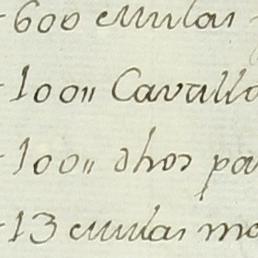 600 mulas
100 Cavallo
100 dhos pa
13 mulas mo